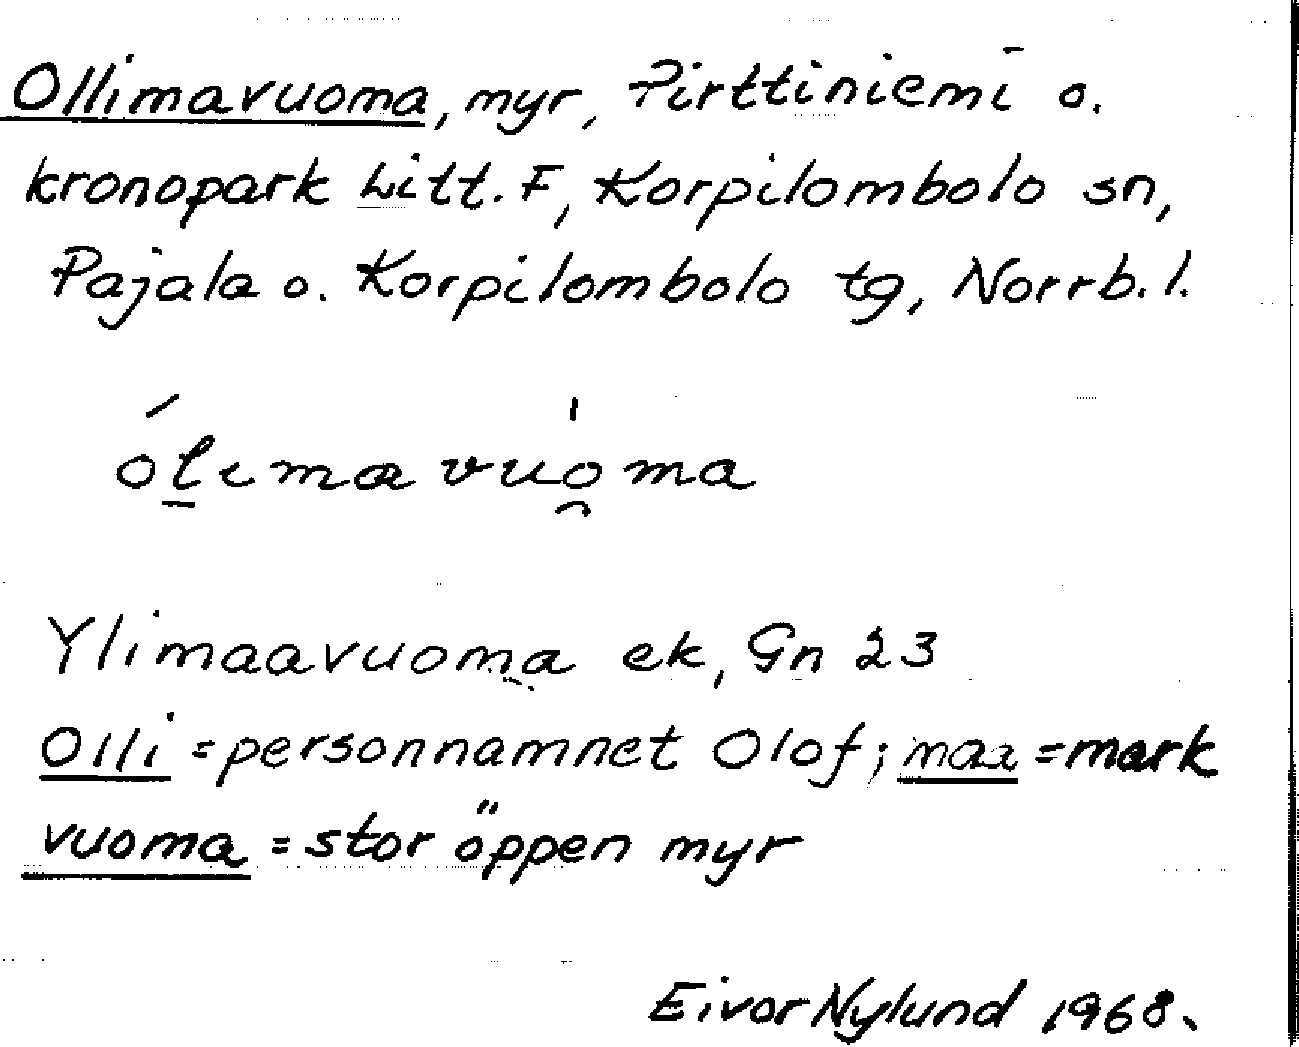 Ollimavuoma, myr, Pirttiniemi o.
kronopark Litt. F, Korpilombolo sn,
Pajala o. Korpilombolo tg, Norrb. l.
ól̲ɩmavuo̯ma
Ylimaavuoma ek, Gn 23
Olli = personnamnet Olof; maa = mark
vuoma = stor öppen myr
Eivor Nylund 1968.